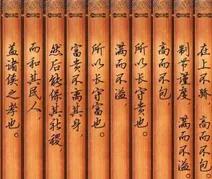 在上不骄 高而不危
制节谨度 满而不溢
高而不危
所以长守贵也。
满而不溢
所以长守富也。
富贵不离其身
然后能保其社稷
而和其民人。
盖诸侯之孝也。